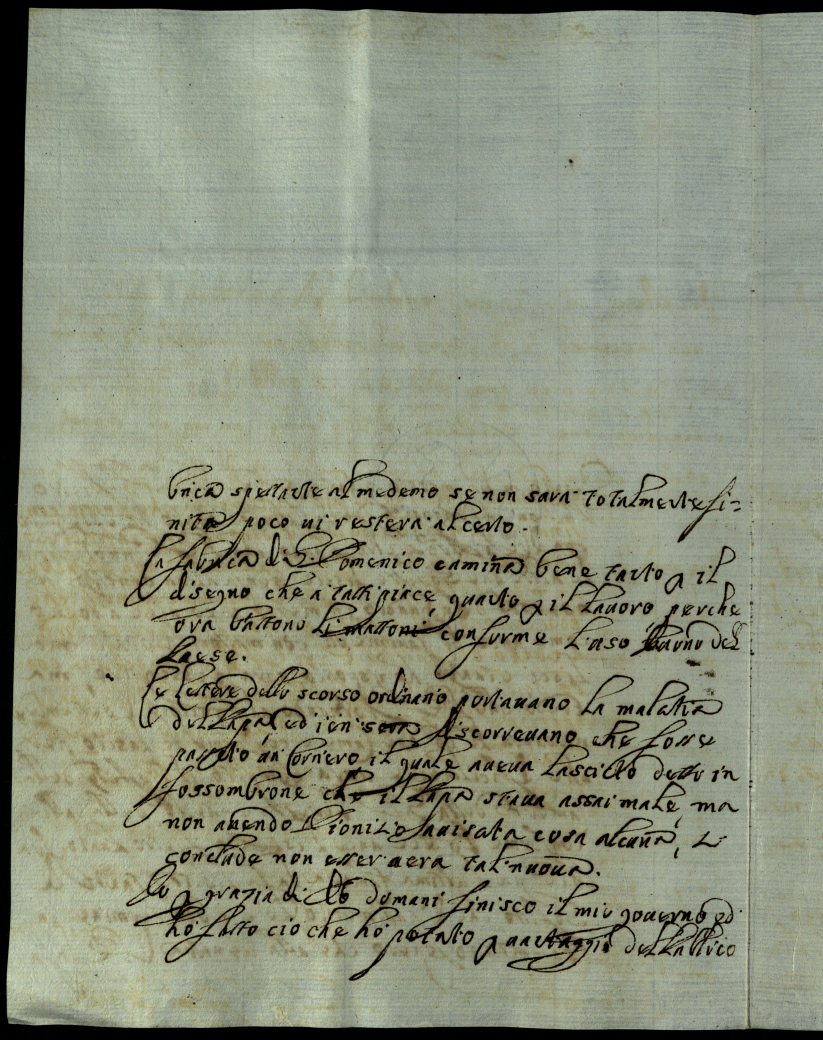 brica spettante al medemo se non sara totalmente fi=
nita poco ui restera al certo.
La fabrica di S. Domenico camina bene tanto p il
disegno che a tutti piace quanto p il lauoro perche
ora battono li mattoni conforme l'uso buono del
Paese.
Le lettere dello scorso ordinario portauano la malatia
del Papa ed ieri sera discorreuano che fosse
passato un Corriero il quale aueua lasciato detto in
fossombrone che il Papa staua assai male, ma
non auendo Dionizio auisata cosa alcuna, si
conclude non esser uera tal nuoua.
Io p grazia di Dio domani finisco il mio gouerno ed
hò fatto ciò che hò potuto p uantaggio del Publico